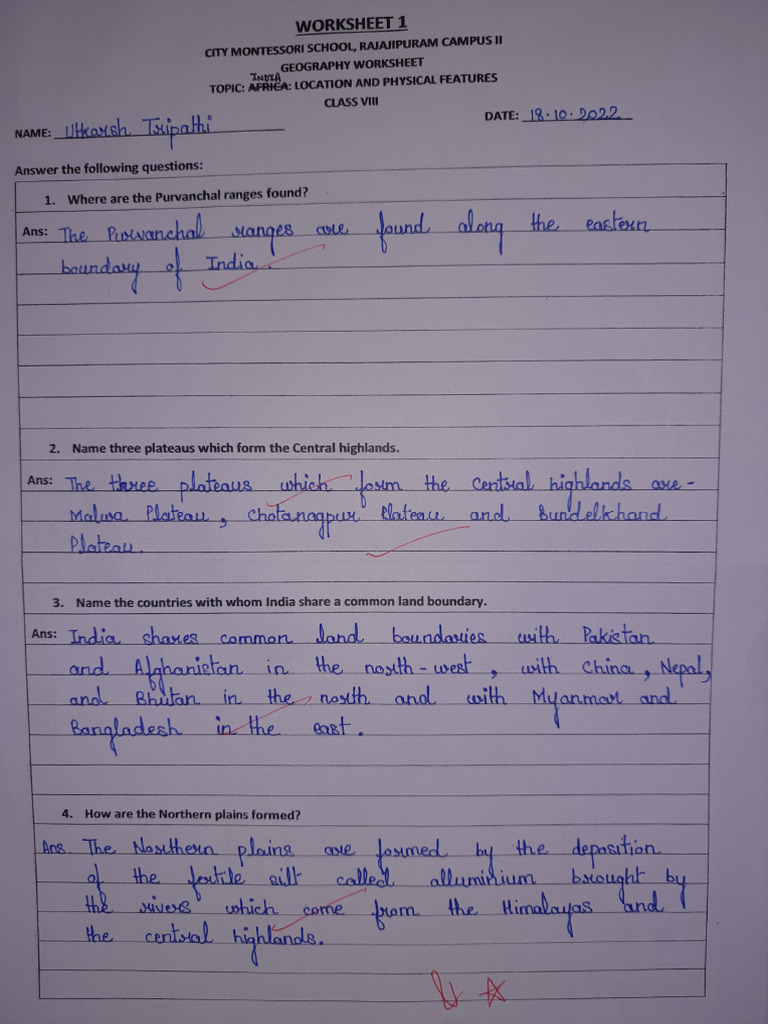 WORKSHEET 1
CITY MONTESSORI SCHOOL, RAJAJIPURAM CAMPUS II
GEOGRAPHY WORKSHEET
INDIA
TOPIC: AFRICA: LOCATION AND PHYSICAL FEATURES
CLASS VIII
NAME: Utkarsh Tripathi DATE: 18.10.2022
Answer the following questions:
1. Where are the Purvanchal ranges found?
Ans: The Purvanchal ranges are found along the eastern
boundary of India.
2. Name three plateaus which form the Central highlands.
Ans: The three plateaus which form the Central highlands are -
Malwa Plateau, Chotanagpur Plateau and Bundelkhand
Plateau.
3. Name the countries with whom India share a common land boundary.
Ans: India shares common land boundaries with Pakistan
and Afghanistan in the north-west, with China, Nepal,
and Bhutan in the north and with Myanmar and
Bangladesh in the east.
4. How are the Northern plains formed?
Ans The Northern plains are formed by the deposition
of the fertile silt called alluminium brought by
the rivers which come from the Himalayas and
the central highlands.